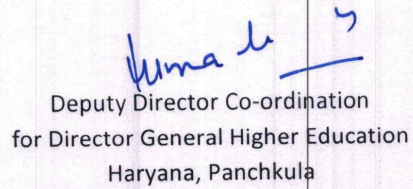 Deputy Director Co-ordination
for Director General Higher Education
Haryana, Panchkula